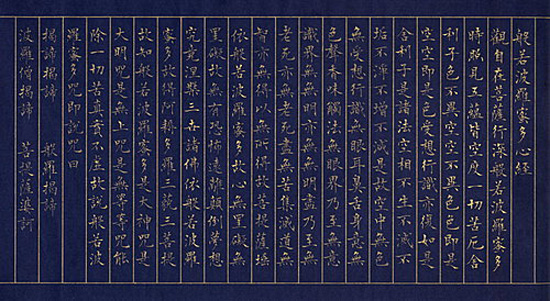 般若波羅蜜多心經
觀自在菩薩行深般若波羅蜜多
時照見五蘊皆空度一切苦厄舍
利子色不異空空不異色色即是
空空即是色受想行識亦復如是
舍利子是諸法空相不生不滅不
垢不淨不增不減是故空中無色
無受想行識無眼耳鼻舌身意無
色聲香味觸法無眼界乃至無意
識界無無明亦無無明盡乃至無
老死亦無老死盡無苦集滅道無
智亦無得以無所得故菩提薩埵
依般若波羅蜜多故心無罣礙無
罣礙故無有恐怖遠離顛倒夢想
究竟涅槃三世諸佛依般若波羅
蜜多故得阿耨多羅三藐三菩提
故知般若波羅蜜多是大神咒是
大明咒是無上咒是無等等咒能
除一切苦真實不虛故說般若波
羅蜜多咒即說咒曰
揭諦揭諦 般羅揭諦
波羅僧揭諦 菩提薩婆訶